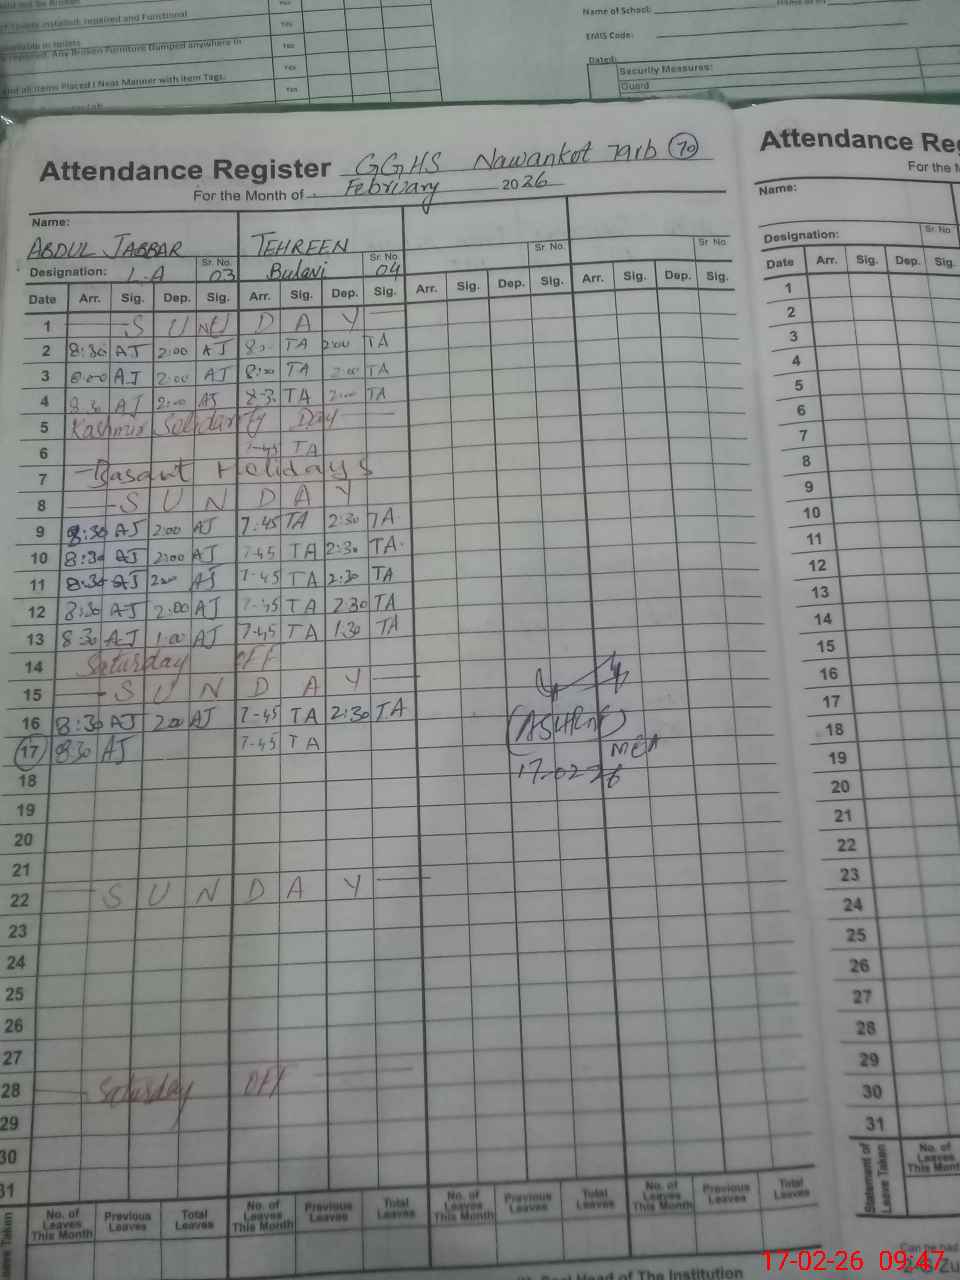 of Toilets Installed, repaired and Functional
available in toilets
repaired, Any Broken Furniture Dumped anywhere in
and all items Placed I Neat Manner with Item Tags.
Yes
Yes
Yes
Yes
Name of School:
EMIS Code:
Dated:
Security Measures:
Guard
Attendance Register GGHS Nawankot 79rb 70
For the Month of February 2026
Name:
ABDUL JABBAR TEHREEN
Sr. No. Sr. No. Sr. No. Sr. No.
Designation: L.A 03 Bulavi 04
Date Arr. Sig. Dep. Sig. Arr. Sig. Dep. Sig. Arr. Sig. Dep. Sig. Arr. Sig. Dep. Sig.
1 S U N D A Y
2 8:30 AJ 2:00 AJ TA 2:00 TA
3 8:00 AJ 2:00 AJ 8:00 TA 2:00 TA
4 8:30 AJ 2:00 AJ 8:30 TA 2:00 TA
5 Kashmir Solidarity Day
6 7-45 TA
7 Basant Holidays
8 S U N D A Y
9 8:30 AJ 2:00 AJ 7:45 TA 2:30 TA
10 8:30 AJ 2:00 AJ 7-45 TA 2:30 TA
11 8:30 AJ 200 AJ 7-45 TA 2:30 TA
12 8:30 AJ 2:00 AJ 7-45 TA 2:30 TA
13 8:30 AJ 1:00 AJ 7-45 TA 1:30 TA
14 Saturday OFF
15 S U N D A Y
16 8:30 AJ 200 AJ 7-45 TA 2:30 TA
17 8:30 AJ 7-45 TA
(ASHRAF)
MEA
17-02-26
18
19
20
21
22 S U N D A Y
23
24
25
26
27
28 Saturday OFF
29
30
31
Leave Taken
No. of Leaves This Month Previous Leaves Total Leaves No. of Leaves This Month Previous Leaves Total Leaves No. of Leaves This Month Previous Leaves Total Leaves No. of Leaves This Month Previous Leaves Total Leaves
Head of The Institution
Attendance Reg
For the M
Name:
Designation:
Sr. No.
Date Arr. Sig. Dep. Sig.
1
2
3
4
5
6
7
8
9
10
11
12
13
14
15
16
17
18
19
20
21
22
23
24
25
26
27
28
29
30
31
Statement of Leave Taken
No. of Leaves This Month
Can be had
17-02-26 09:47